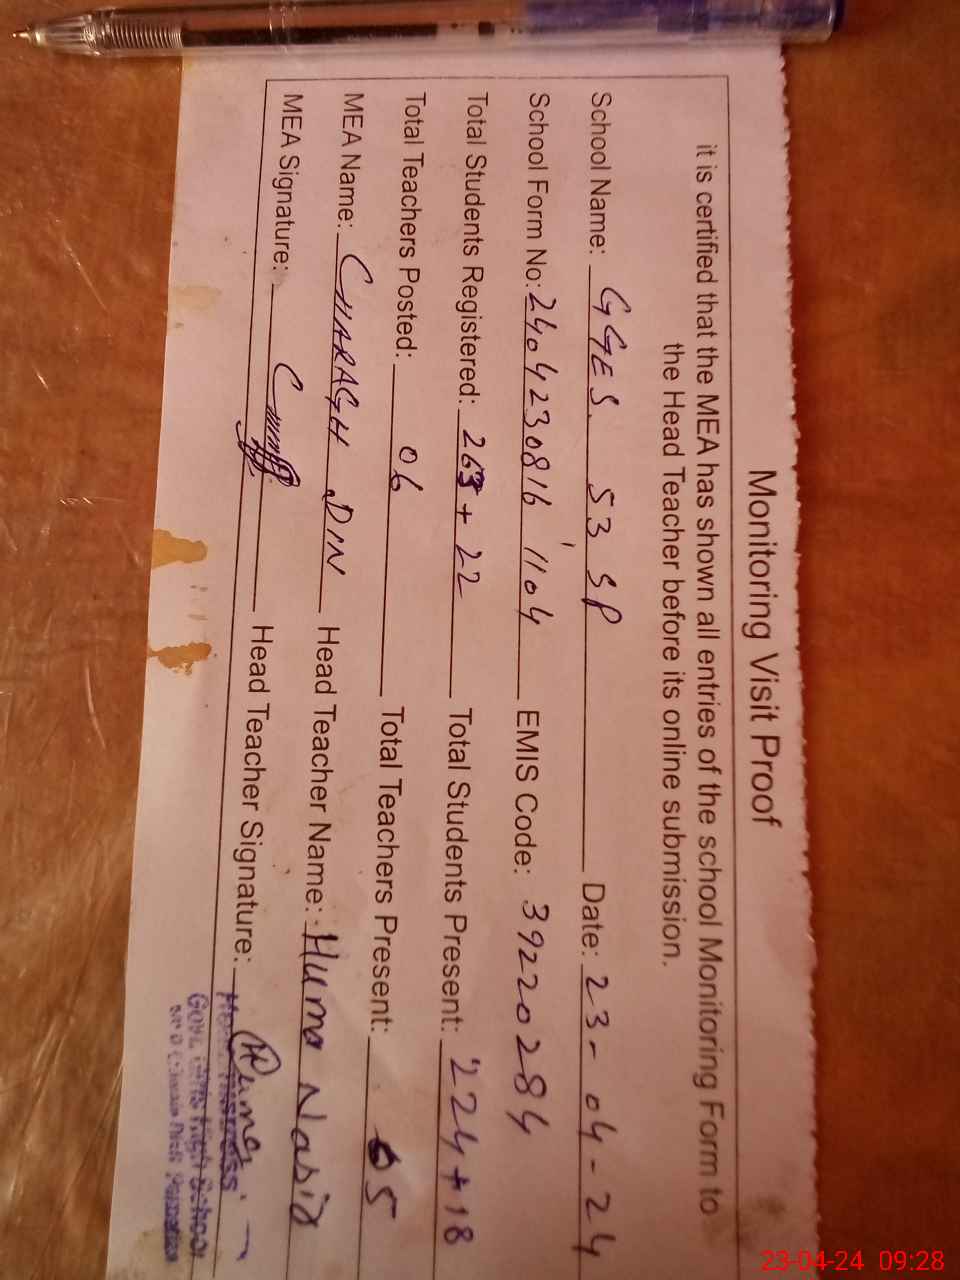 Monitoring Visit Proof
it is certified that the MEA has shown all entries of the school Monitoring Form to
the Head Teacher before its online submission.
School Name: GGES. 53 SP Date: 23-04-24
School Form No: 2404230816 1104 EMIS Code: 39220284
Total Students Registered: 263 + 22 Total Students Present: 224 + 18
Total Teachers Posted: 06 Total Teachers Present: 05
MEA Name: CHARAGH DIN Head Teacher Name: Huma Nasir
MEA Signature: Head Teacher Signature: Huma
Head Mistress
Govt. Girls High School
23-04-24 09:28